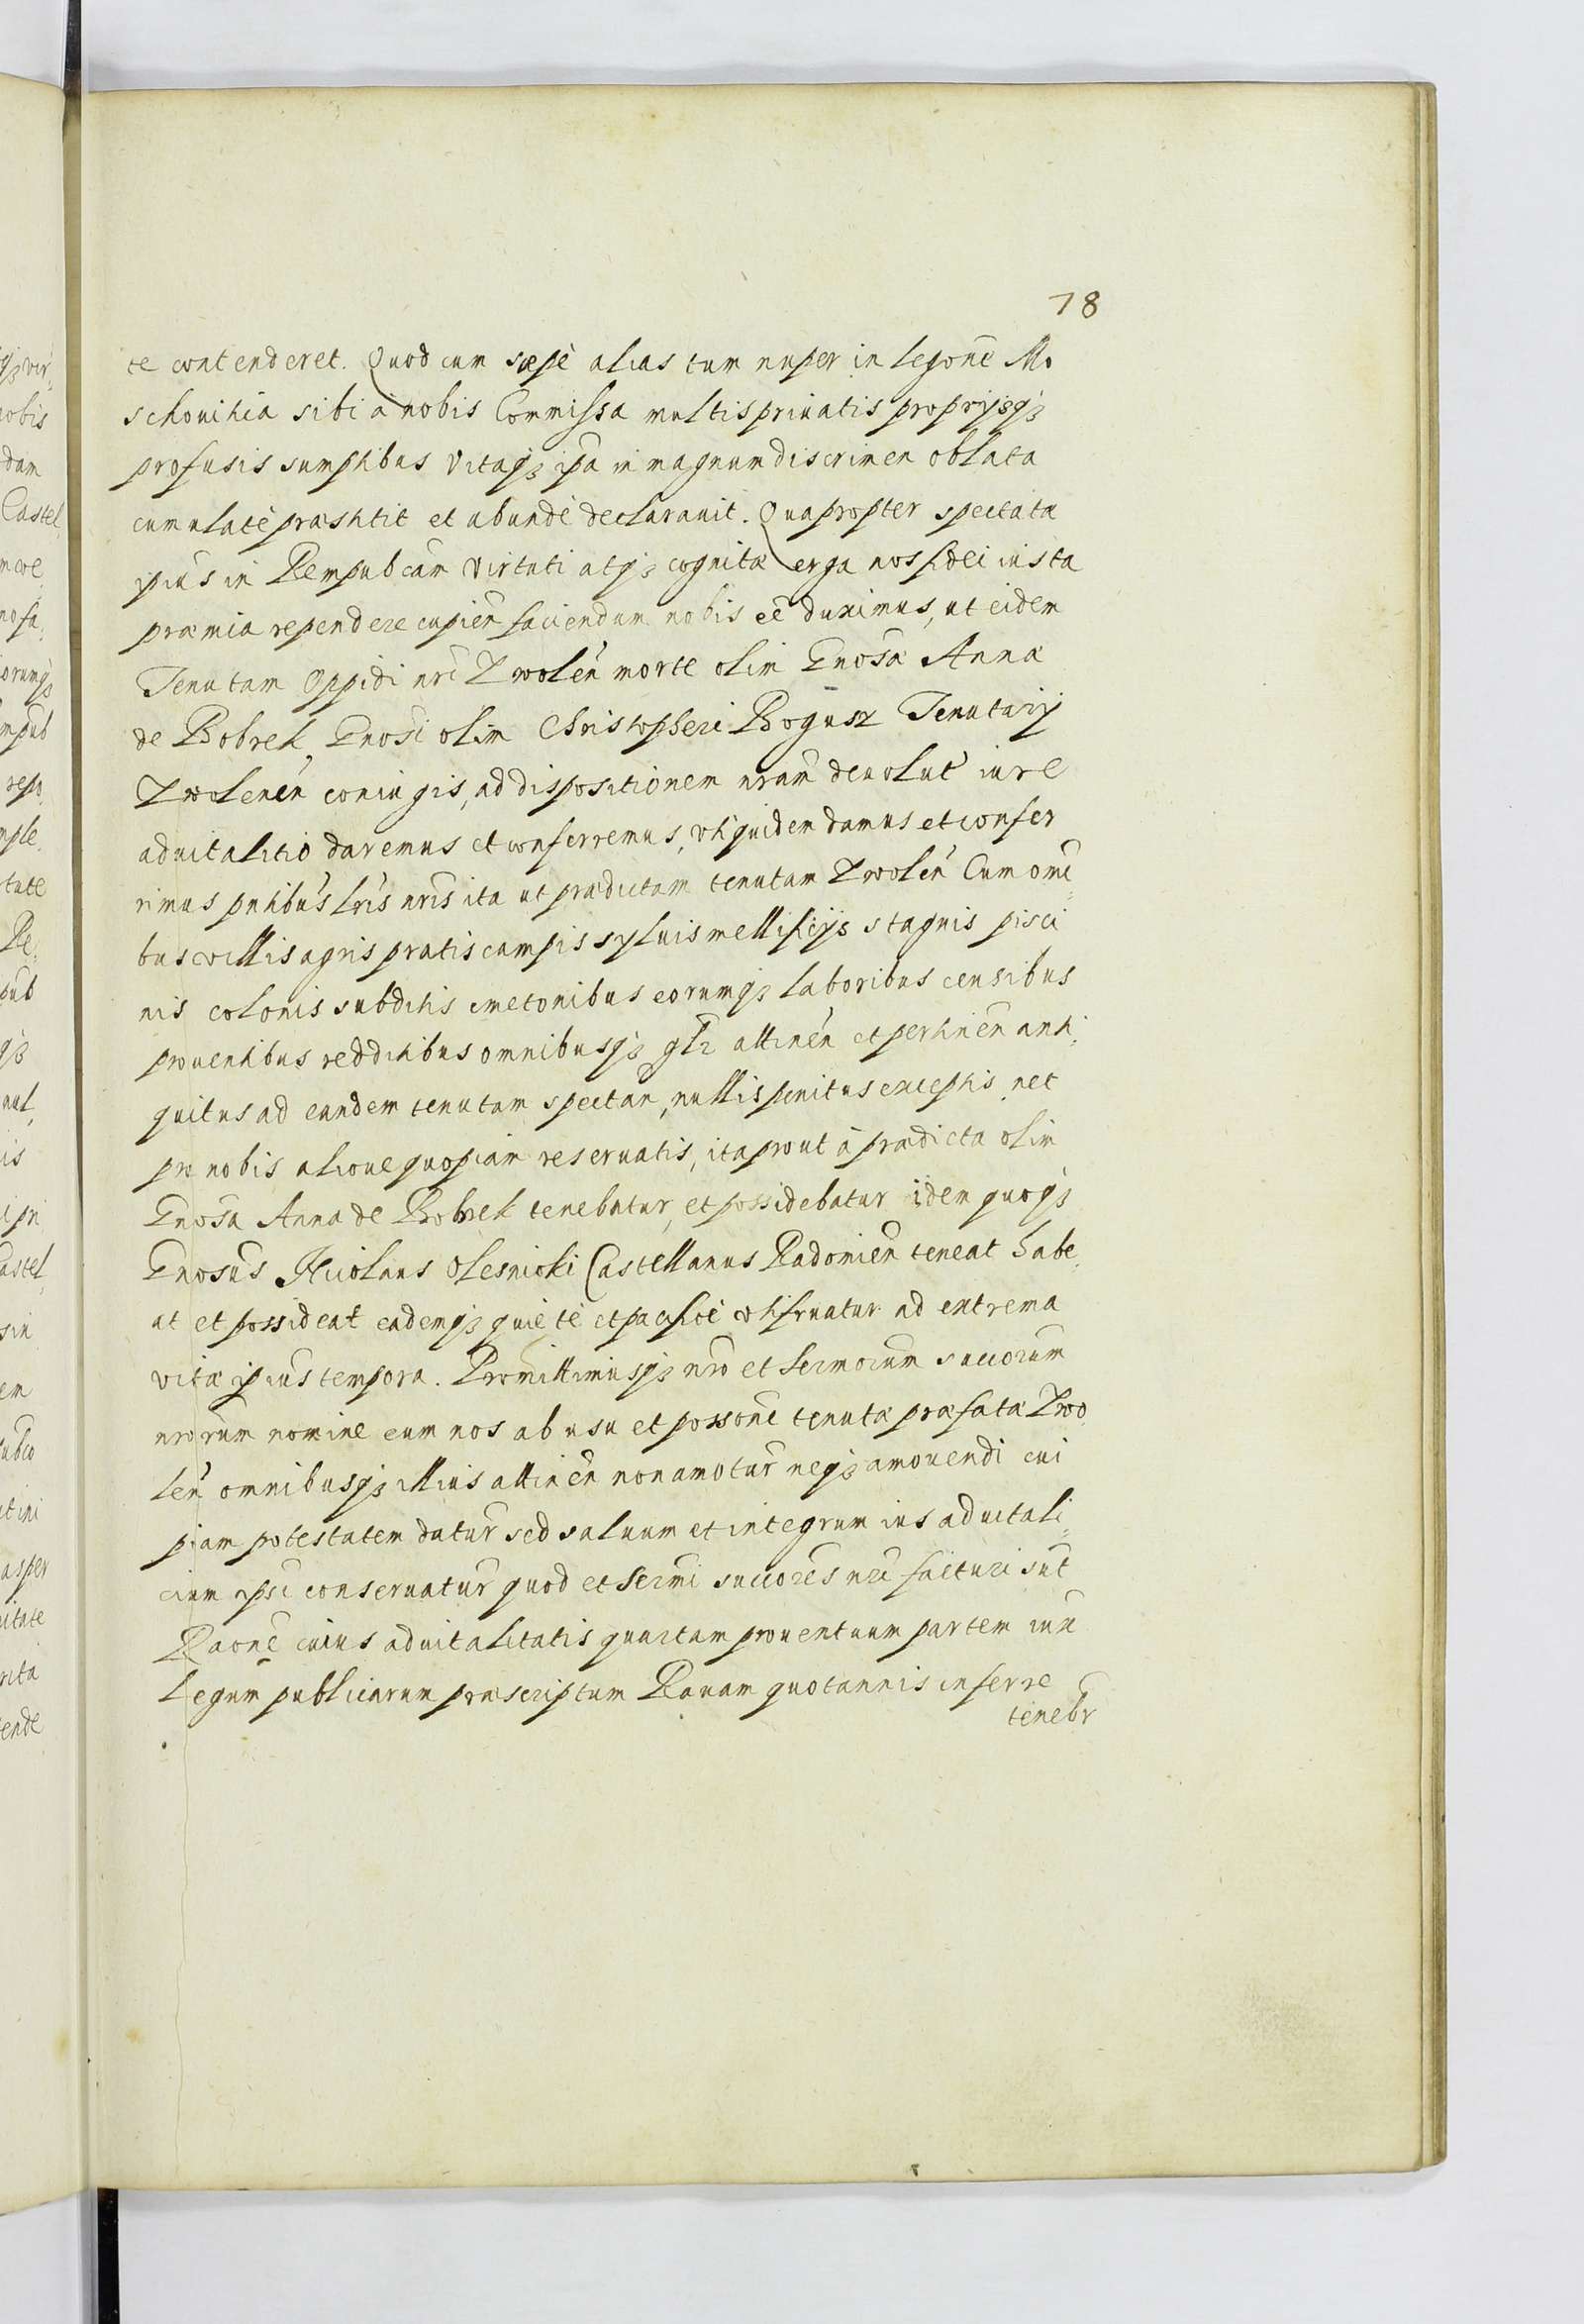 78
te contenderet. Quod cum sæpè alias tum nuper in legonē Mo
schouitica sibi à nobis Commissa multis priuatis proprijsq3
profusis sumptibus vitaq3 ipā in magnum discrimen oblata
cumulatè præstitit et abundè declarauit. Quapropter spectatæ
ipius in Rempubcam virtuti atq3 cognitæ erga nos fidei iusta
præmia rependere cupien̄ faciendum nobis eē duximus, ut eidem
Tenutam Oppidi nrī Zwolen̄ morte olim Gnosæ Annæ
de Bobrek Gnosi olim Christopheri Bogusz Tenutarij
Zwolenen̄ coniugis, ad dispositionem nram̄ deuolut̄ iure
aduitalitio daremus et conferremus, vti quidem damus et confer
rimus pntibus lris nris ita ut prædictam tenutam Zwolen̄ Cum omi
bus villis agris pratis campis syluis mellificijs stagnis pisci
nis colonis subditis cmetonibus eorumq3 laboribus censibus
prouentibus redditibus omnibusq3 glr̄ attinen̄ et pertinen̄ anti
quitus ad eandem tenutam spectan̄, nullis penitus exceptis nec
pro nobis alioue quopiam reseruatis, ita prout à prædicta olim
Gnosa Anna de Bobrek tenebatur, et possidebatur idem quoq3
Gnosus Nicolaus Olesnicki Castellanus Radomien̄ teneat habe
at et possideat eademq3 quietè et pacificè vtifruatur ad extrema
vitæ ipius tempora. Promittimusq3 nrō et sermorum succorum
nrorum nomine eum nos ab usu et possone tenutæ præfatæ Zwo
len̄ omnibusq3 illius attinen̄ non amotur̄ neq3 amouendi cui
piam potestatem datur̄ sed saluum et integrum ius aduitali
cium ipsi conseruatur̄ quod et Sermi succores nrī facturi sūt
Raone cuius aduitalitatis quartam prouentuum partem iux
Legum publicarum præscriptum Rauam quotannis inferre
tenebr